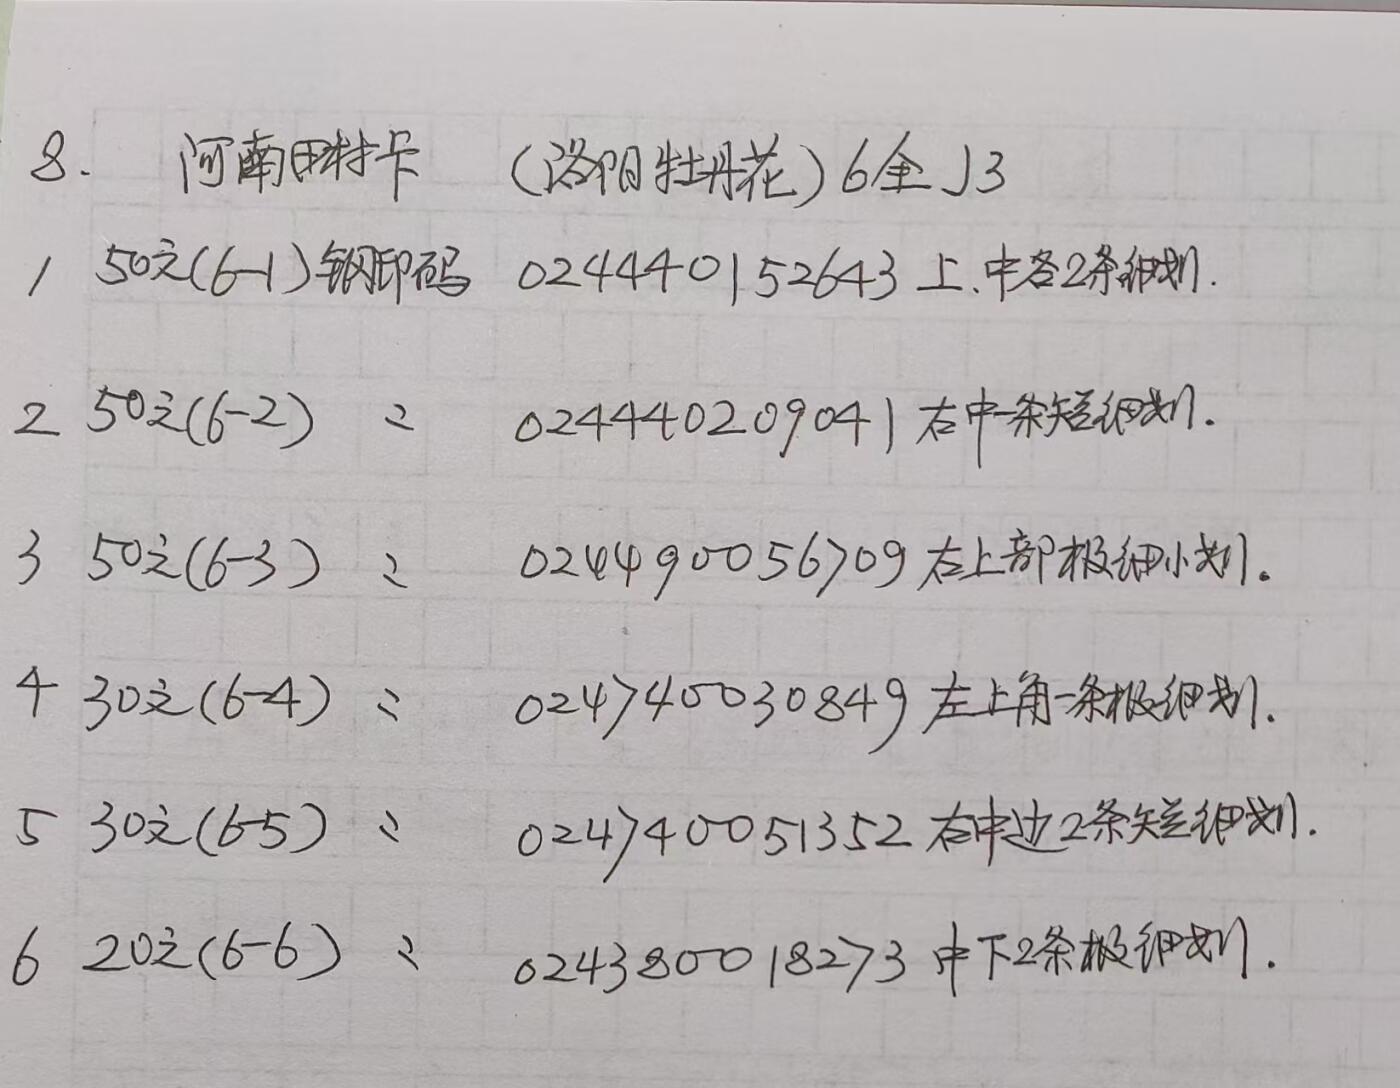 8. 河南田村卡 (洛阳牡丹花) 6全 J3
1 50元(6-1) 钢印码 024440152643 上.中各2条细划.
2 50元(6-2) 〃 024440209041 右中一条短细划.
3 50元(6-3) 〃 024490056709 右上部极细小划.
4 30元(6-4) 〃 024740030849 左上角一条极细划.
5 30元(6-5) 〃 024740051352 右中边2条短细划.
6 20元(6-6) 〃 024380018273 中下2条极细划.